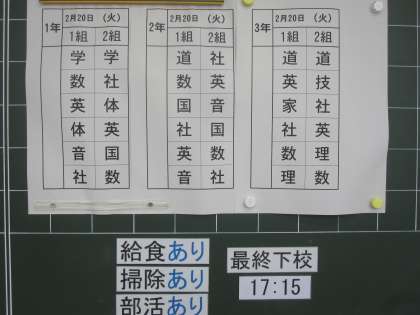 1年 2月20日 (火)
1組 2組
学 学
数 社
英 体
体 英
音 国
社 数
2年 2月20日 (火)
1組 2組
道 社
数 英
国 音
社 国
英 数
音 音
3年 2月20日 (火)
1組 2組
道 道
英 技
家 社
社 英
数 理
理 数
給食あり
掃除あり
部活あり
最終下校
17:15